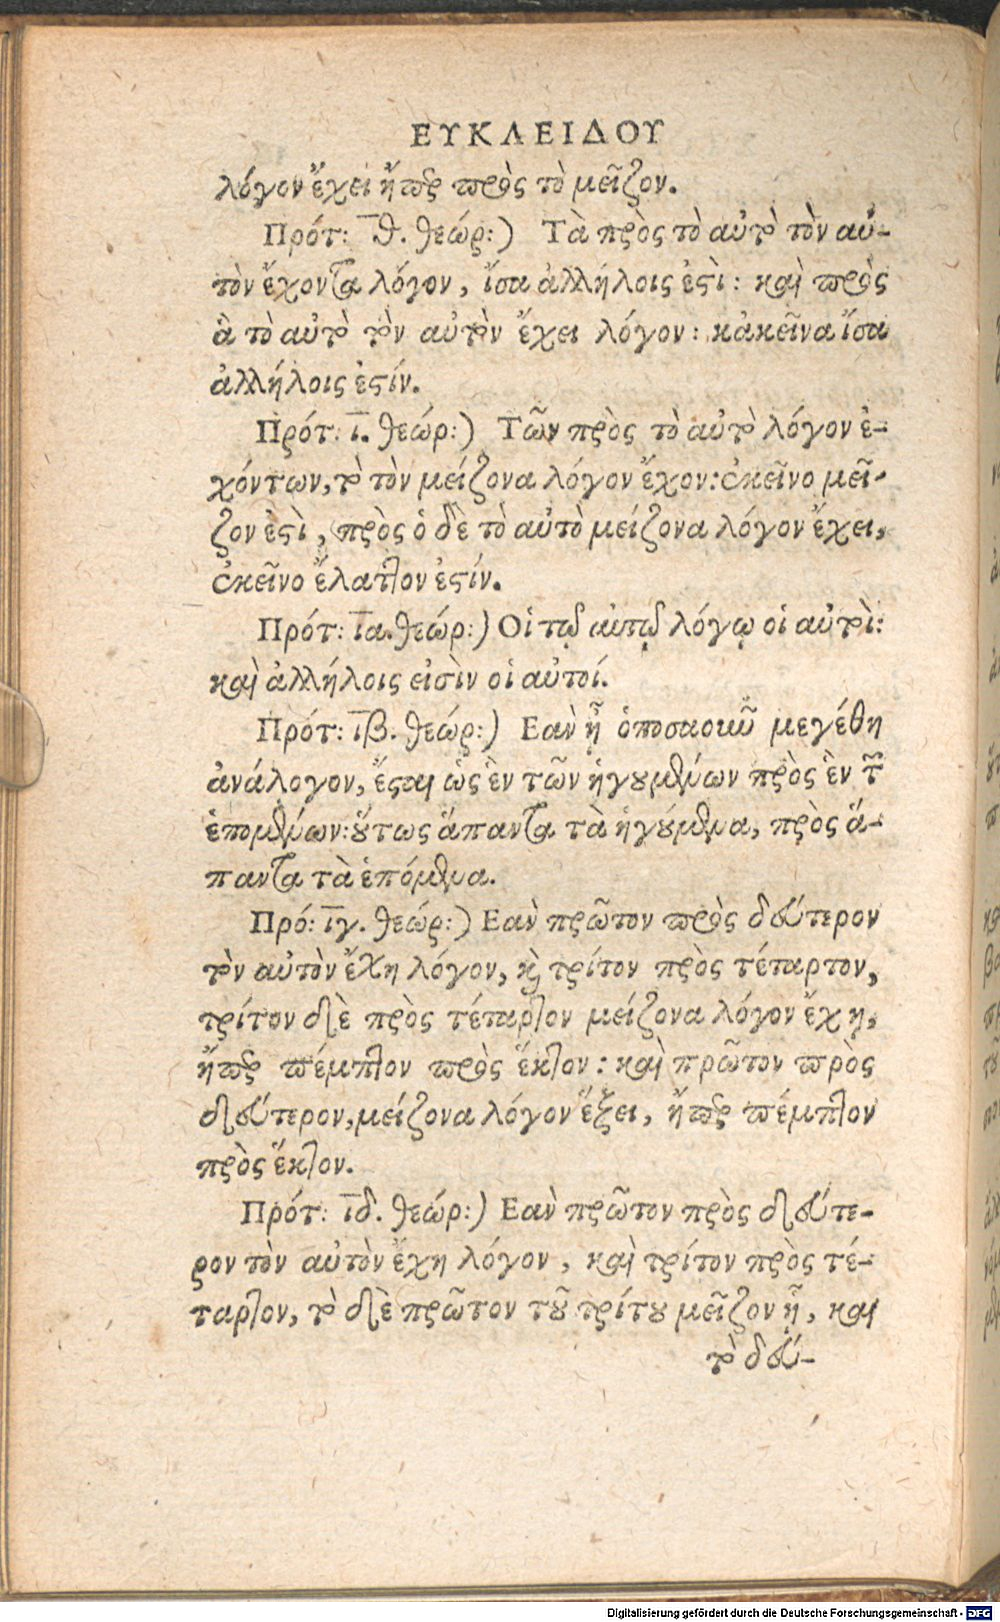 ΕΥΚΛΕΙΔΟΥ
λόγον ἔχει ἤπερ πρὸς τὸ μεῖζον.
Πρότ: θ. θεώρ:) Τὰ πρὸς τὸ αὐτὸ τὸν αὐ-
τὸν ἔχοντα λόγον, ἴσα ἀλλήλοις ἐστὶ: καὶ πρὸς
ἃ τὸ αὐτὸ τὸν αὐτὸν ἔχει λόγον: κἀκεῖνα ἴσα
ἀλλήλοις ἐστίν.
Πρότ: ι. θεώρ:) Τῶν πρὸς τὸ αὐτὸ λόγον ἐ-
χόντων, τὸ τὸν μείζονα λόγον ἔχον: ἐκεῖνο μεῖ-
ζον ἐστὶ, πρὸς ὁ δὲ τὸ αὐτὸ μείζονα λόγον ἔχει,
ἐκεῖνο ἔλαττον ἐστίν.
Πρότ: ια. θεώρ:) Οἱ τῷ αὐτῷ λόγῳ οἱ αὐτοὶ:
καὶ ἀλλήλοις εἰσὶν οἱ αὐτοί.
Πρότ: ιβ. θεώρ:) Εὰν ᾖ ὁποσαοιοῦν μεγέθη
ἀνάλογον, ἔσται ὡς ἓν τῶν ἡγουμένων πρὸς ἓν τῶν
ἑπομένων: οὕτως ἅπαντα τὰ ἡγούμενα, πρὸς ἅ-
παντα τὰ ἑπόμενα.
Πρό: ιγ. θεώρ:) Εὰν πρῶτον πρὸς δεύτερον
τὸν αὐτὸν ἔχη λόγον, καὶ τρίτον πρὸς τέταρτον,
τρίτον δὲ πρὸς τέταρτον μείζονα λόγον ἔχη,
ἤπερ πέμπτον πρὸς ἕκτον: καὶ πρῶτον πρὸς
δεύτερον, μείζονα λόγον ἕξει, ἤπερ πέμπτον
πρὸς ἕκτον.
Πρότ: ιδ. θεώρ:) Εὰν πρῶτον πρὸς δεύτε-
ρον τὸν αὐτὸν ἔχη λόγον, καὶ τρίτον πρὸς τέ-
ταρτον, τὸ δὲ πρῶτον τοῦ τρίτου μεῖζον ᾖ, καὶ
τὸ δεύ-
Digitalisierung gefördert durch die Deutsche Forschungsgemeinschaft - DFG